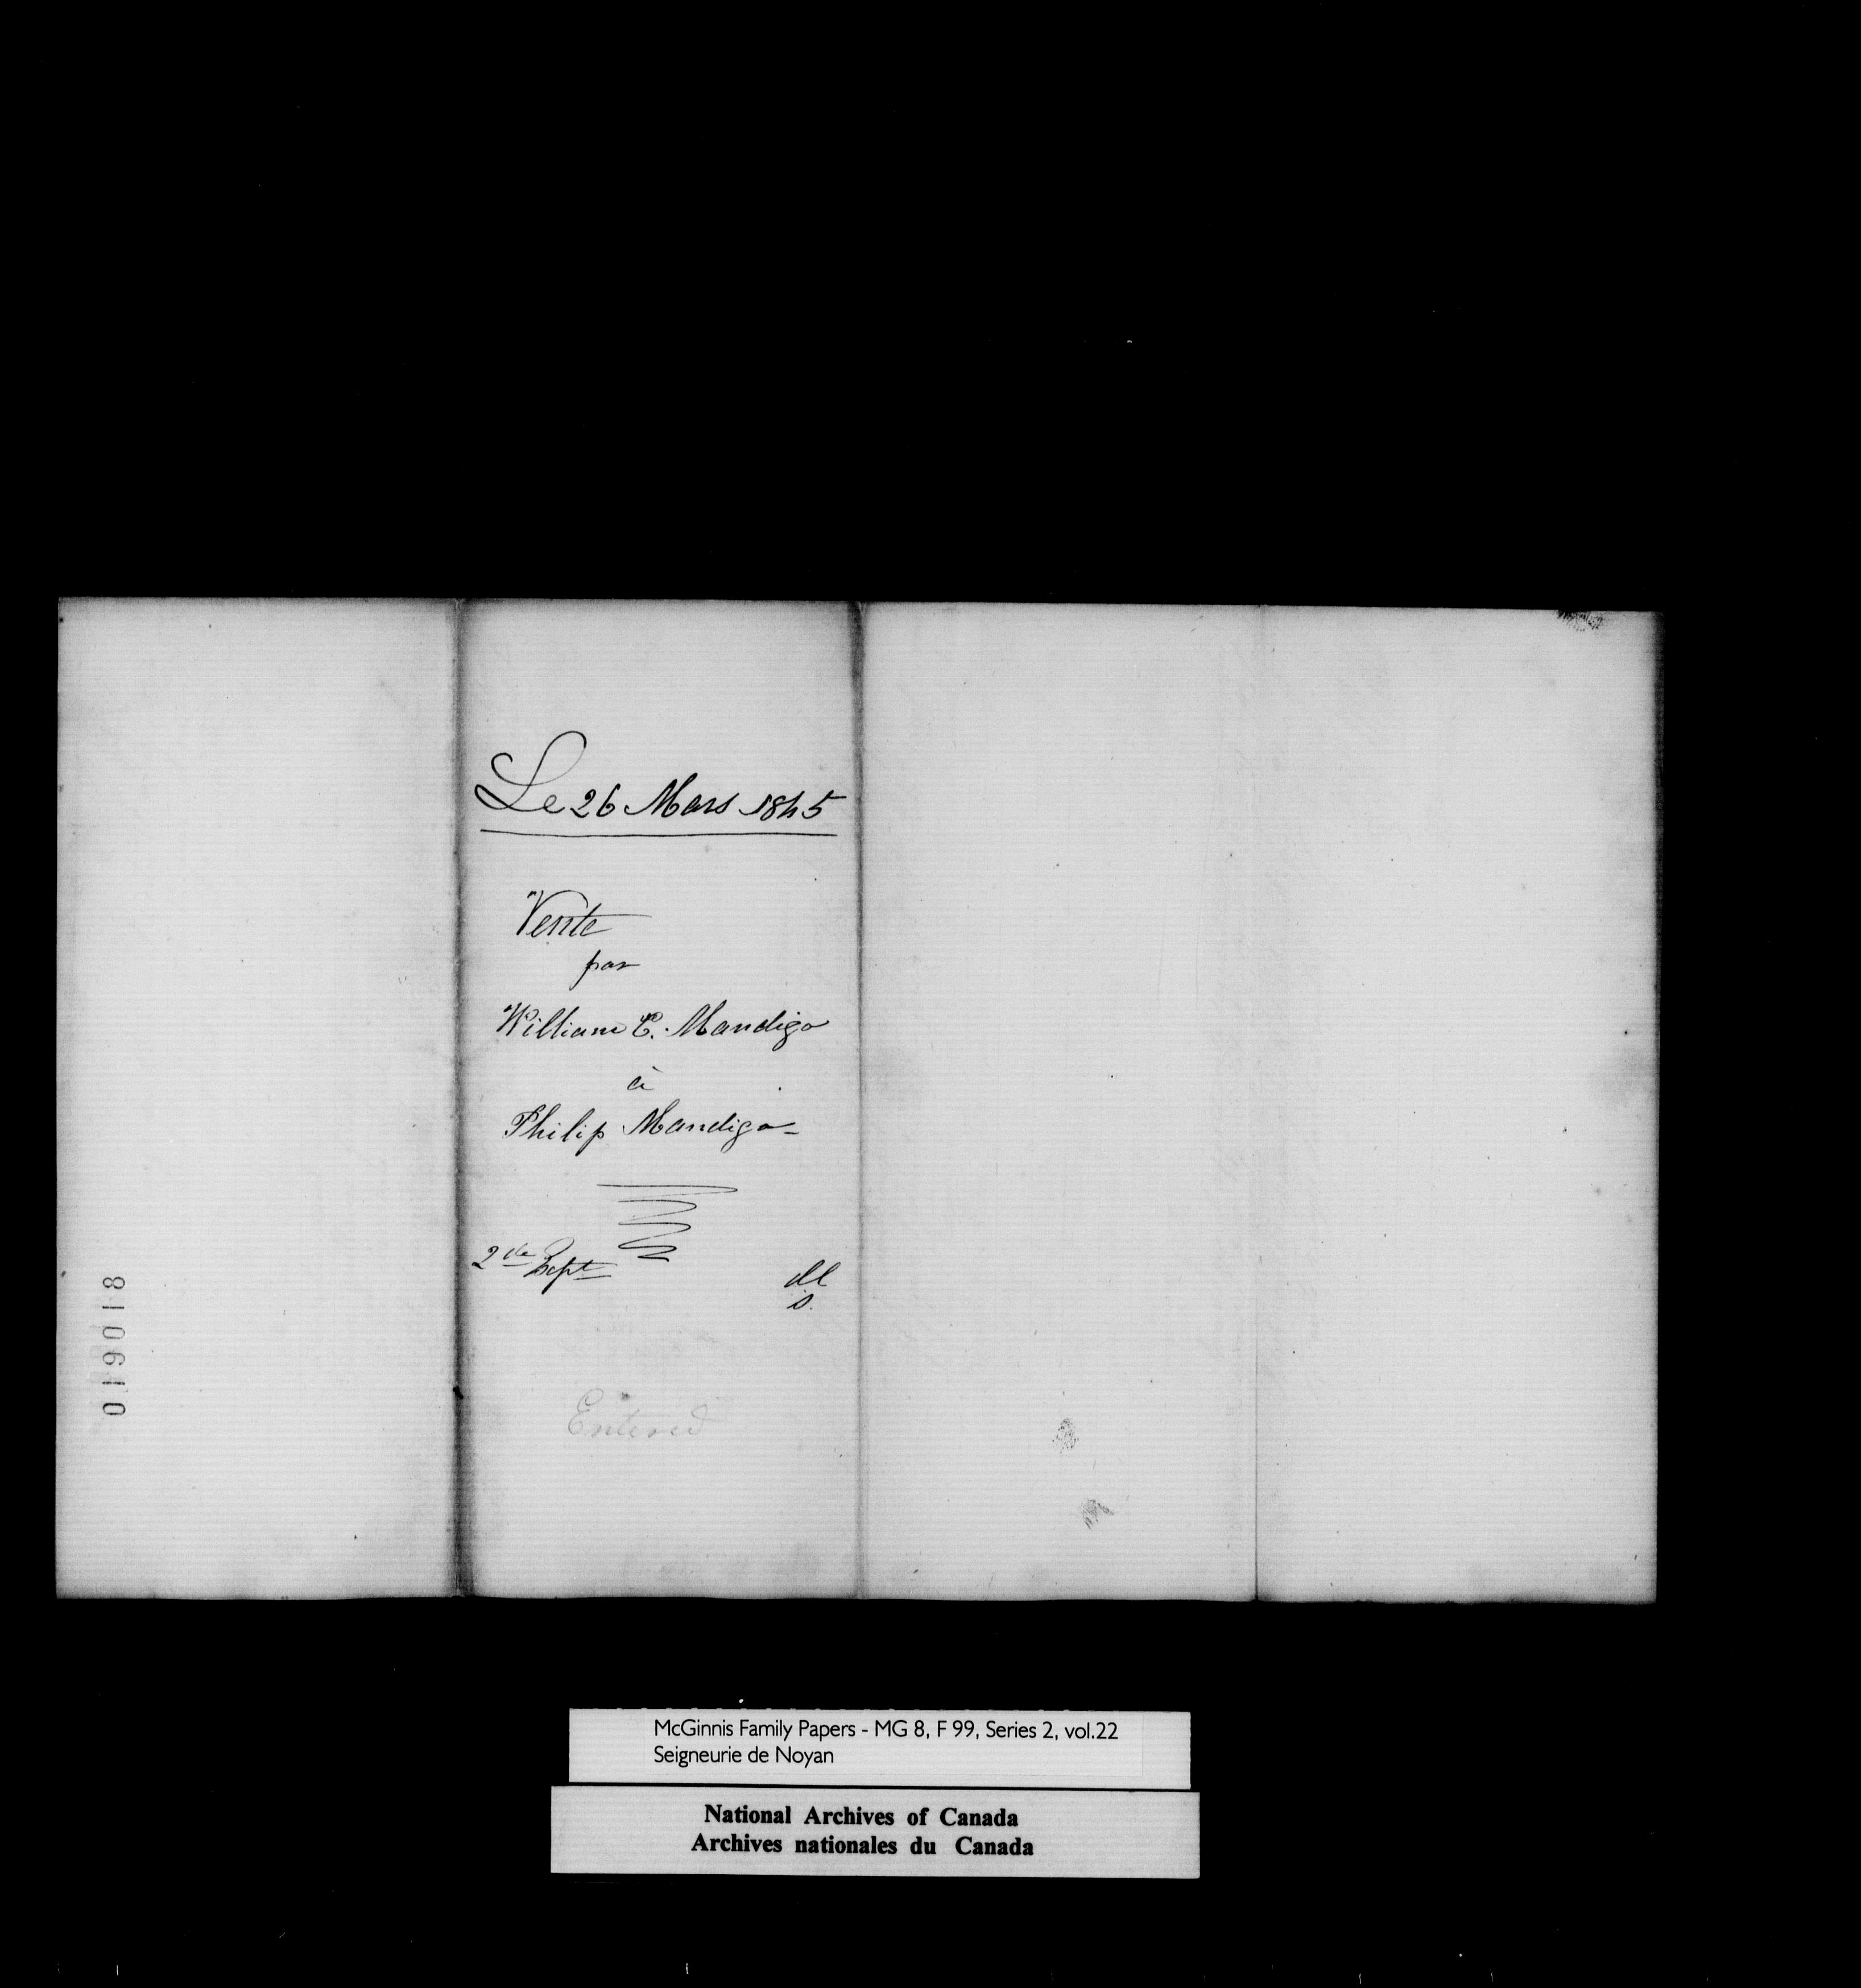 Le 26 Mars 1845
Vente
par
William C. Mandigo
à
Philip Mandigo
2de Expt
Entered
019018
McGinnis Family Papers - MG 8, F 99, Series 2, vol.22
Seigneurie de Noyan
National Archives of Canada
Archives nationales du Canada